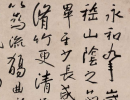 永和九年
稽山陰之
畢至少長咸
脩竹更清
以為流觴曲